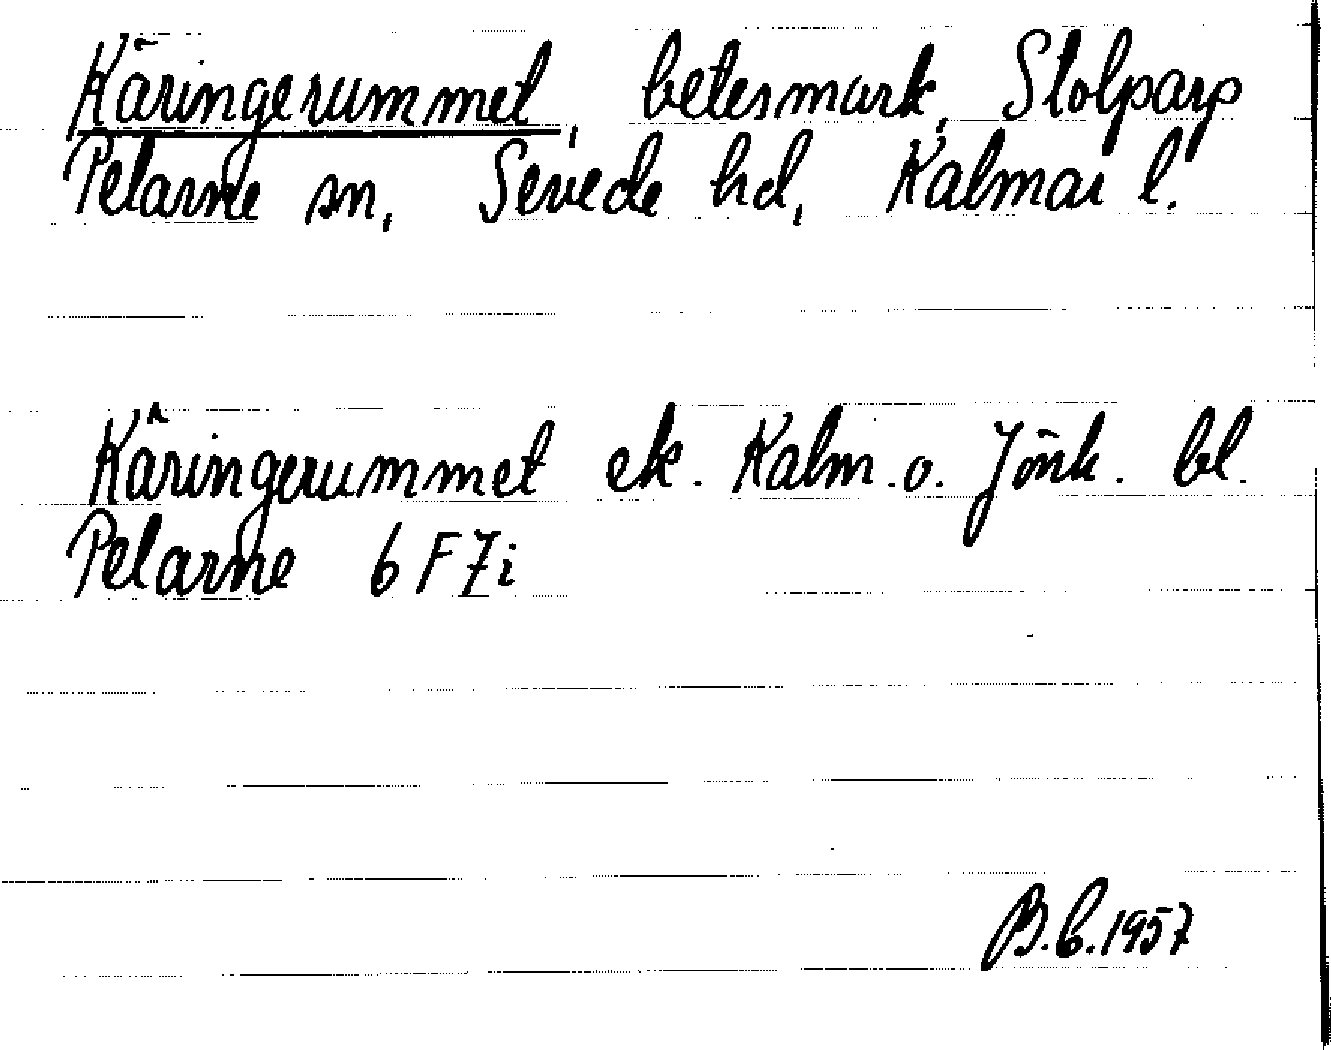 Käringerummet, betesmark, Stolparp
Pelarne sn, Sevede hd, Kalmar l.
Käringerummet ek. Kalm. o. Jönk. bl.
Pelarne 6 F 7i
B.C. 1957